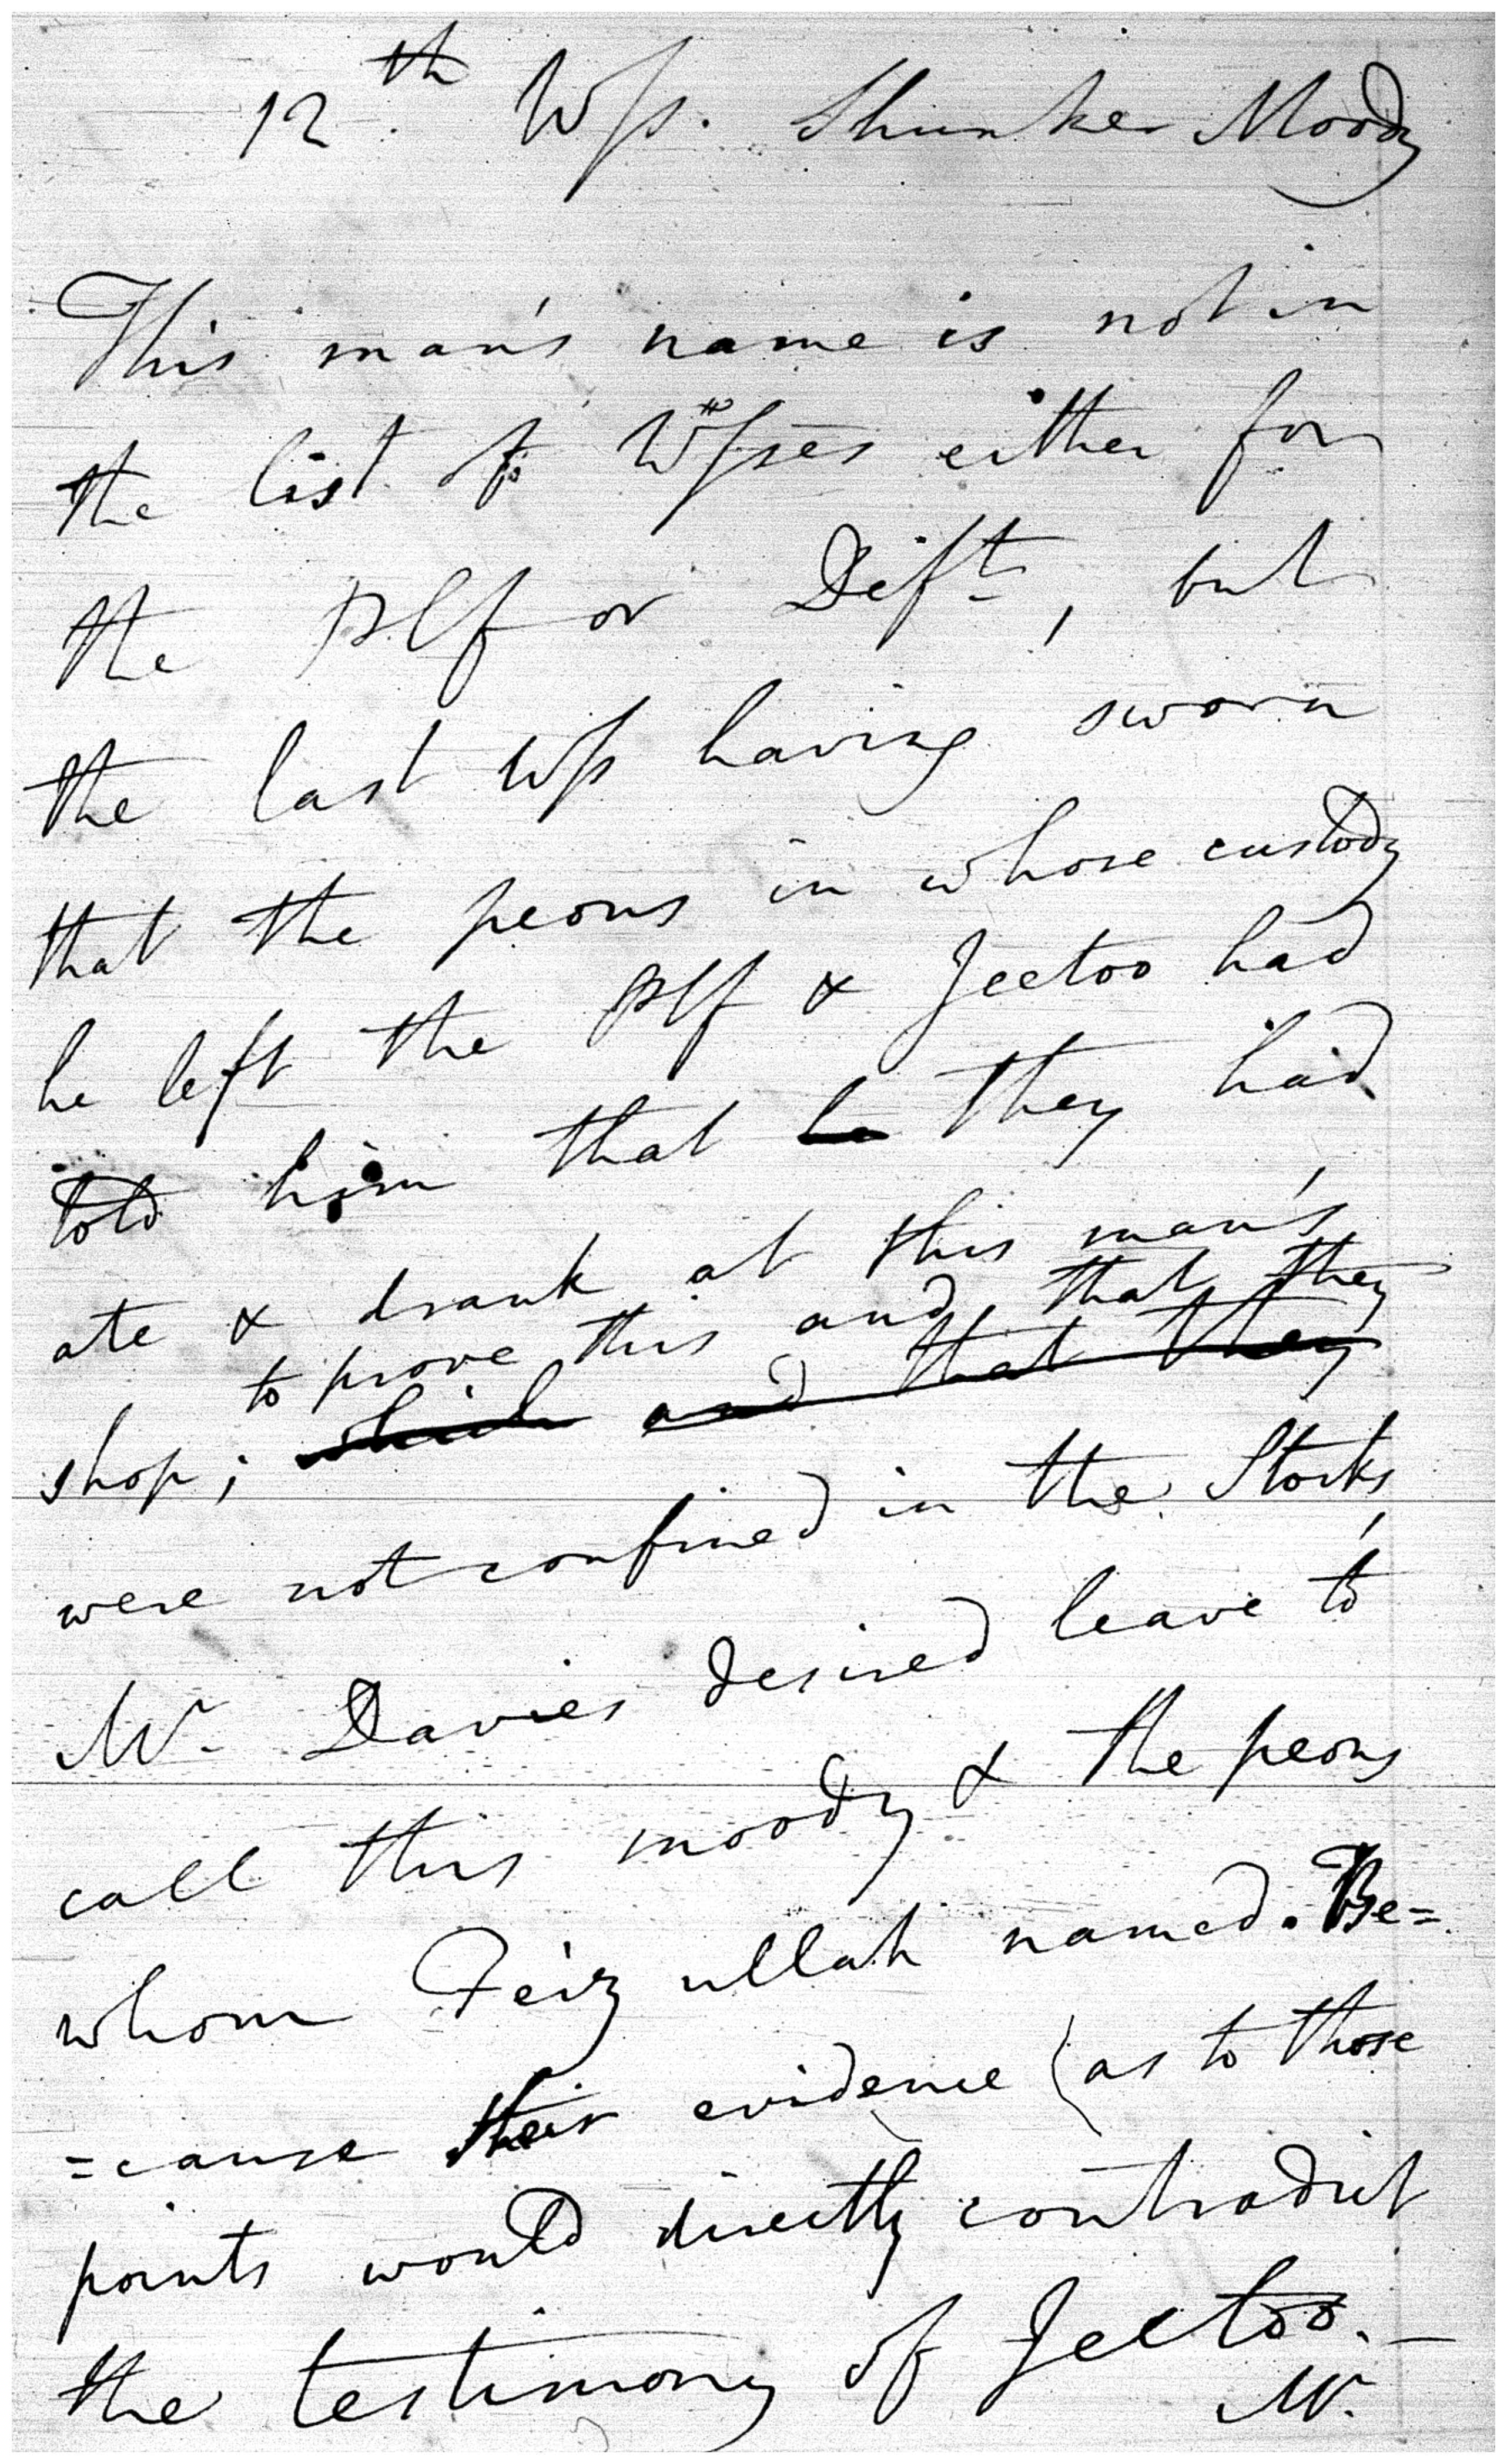 12th. Wss. Shunker Moody
This man's name is not in
the list of Wsses either for
the Plf or Deft, but
the last Wss having sworn
that the peons in whose custody
he left the Plf & Jeetoo had
told him that he they had
ate & drank at this man's
to prove this and that they
shop; which and that they
were not confined in the Stocks,
Mr. Davies desired leave to
call this moody & the peons
whom Feiz ullah named. Be=
=cause their evidence (as to those
points would directly contradict
the testimony of Jeetoo.—
Mr.